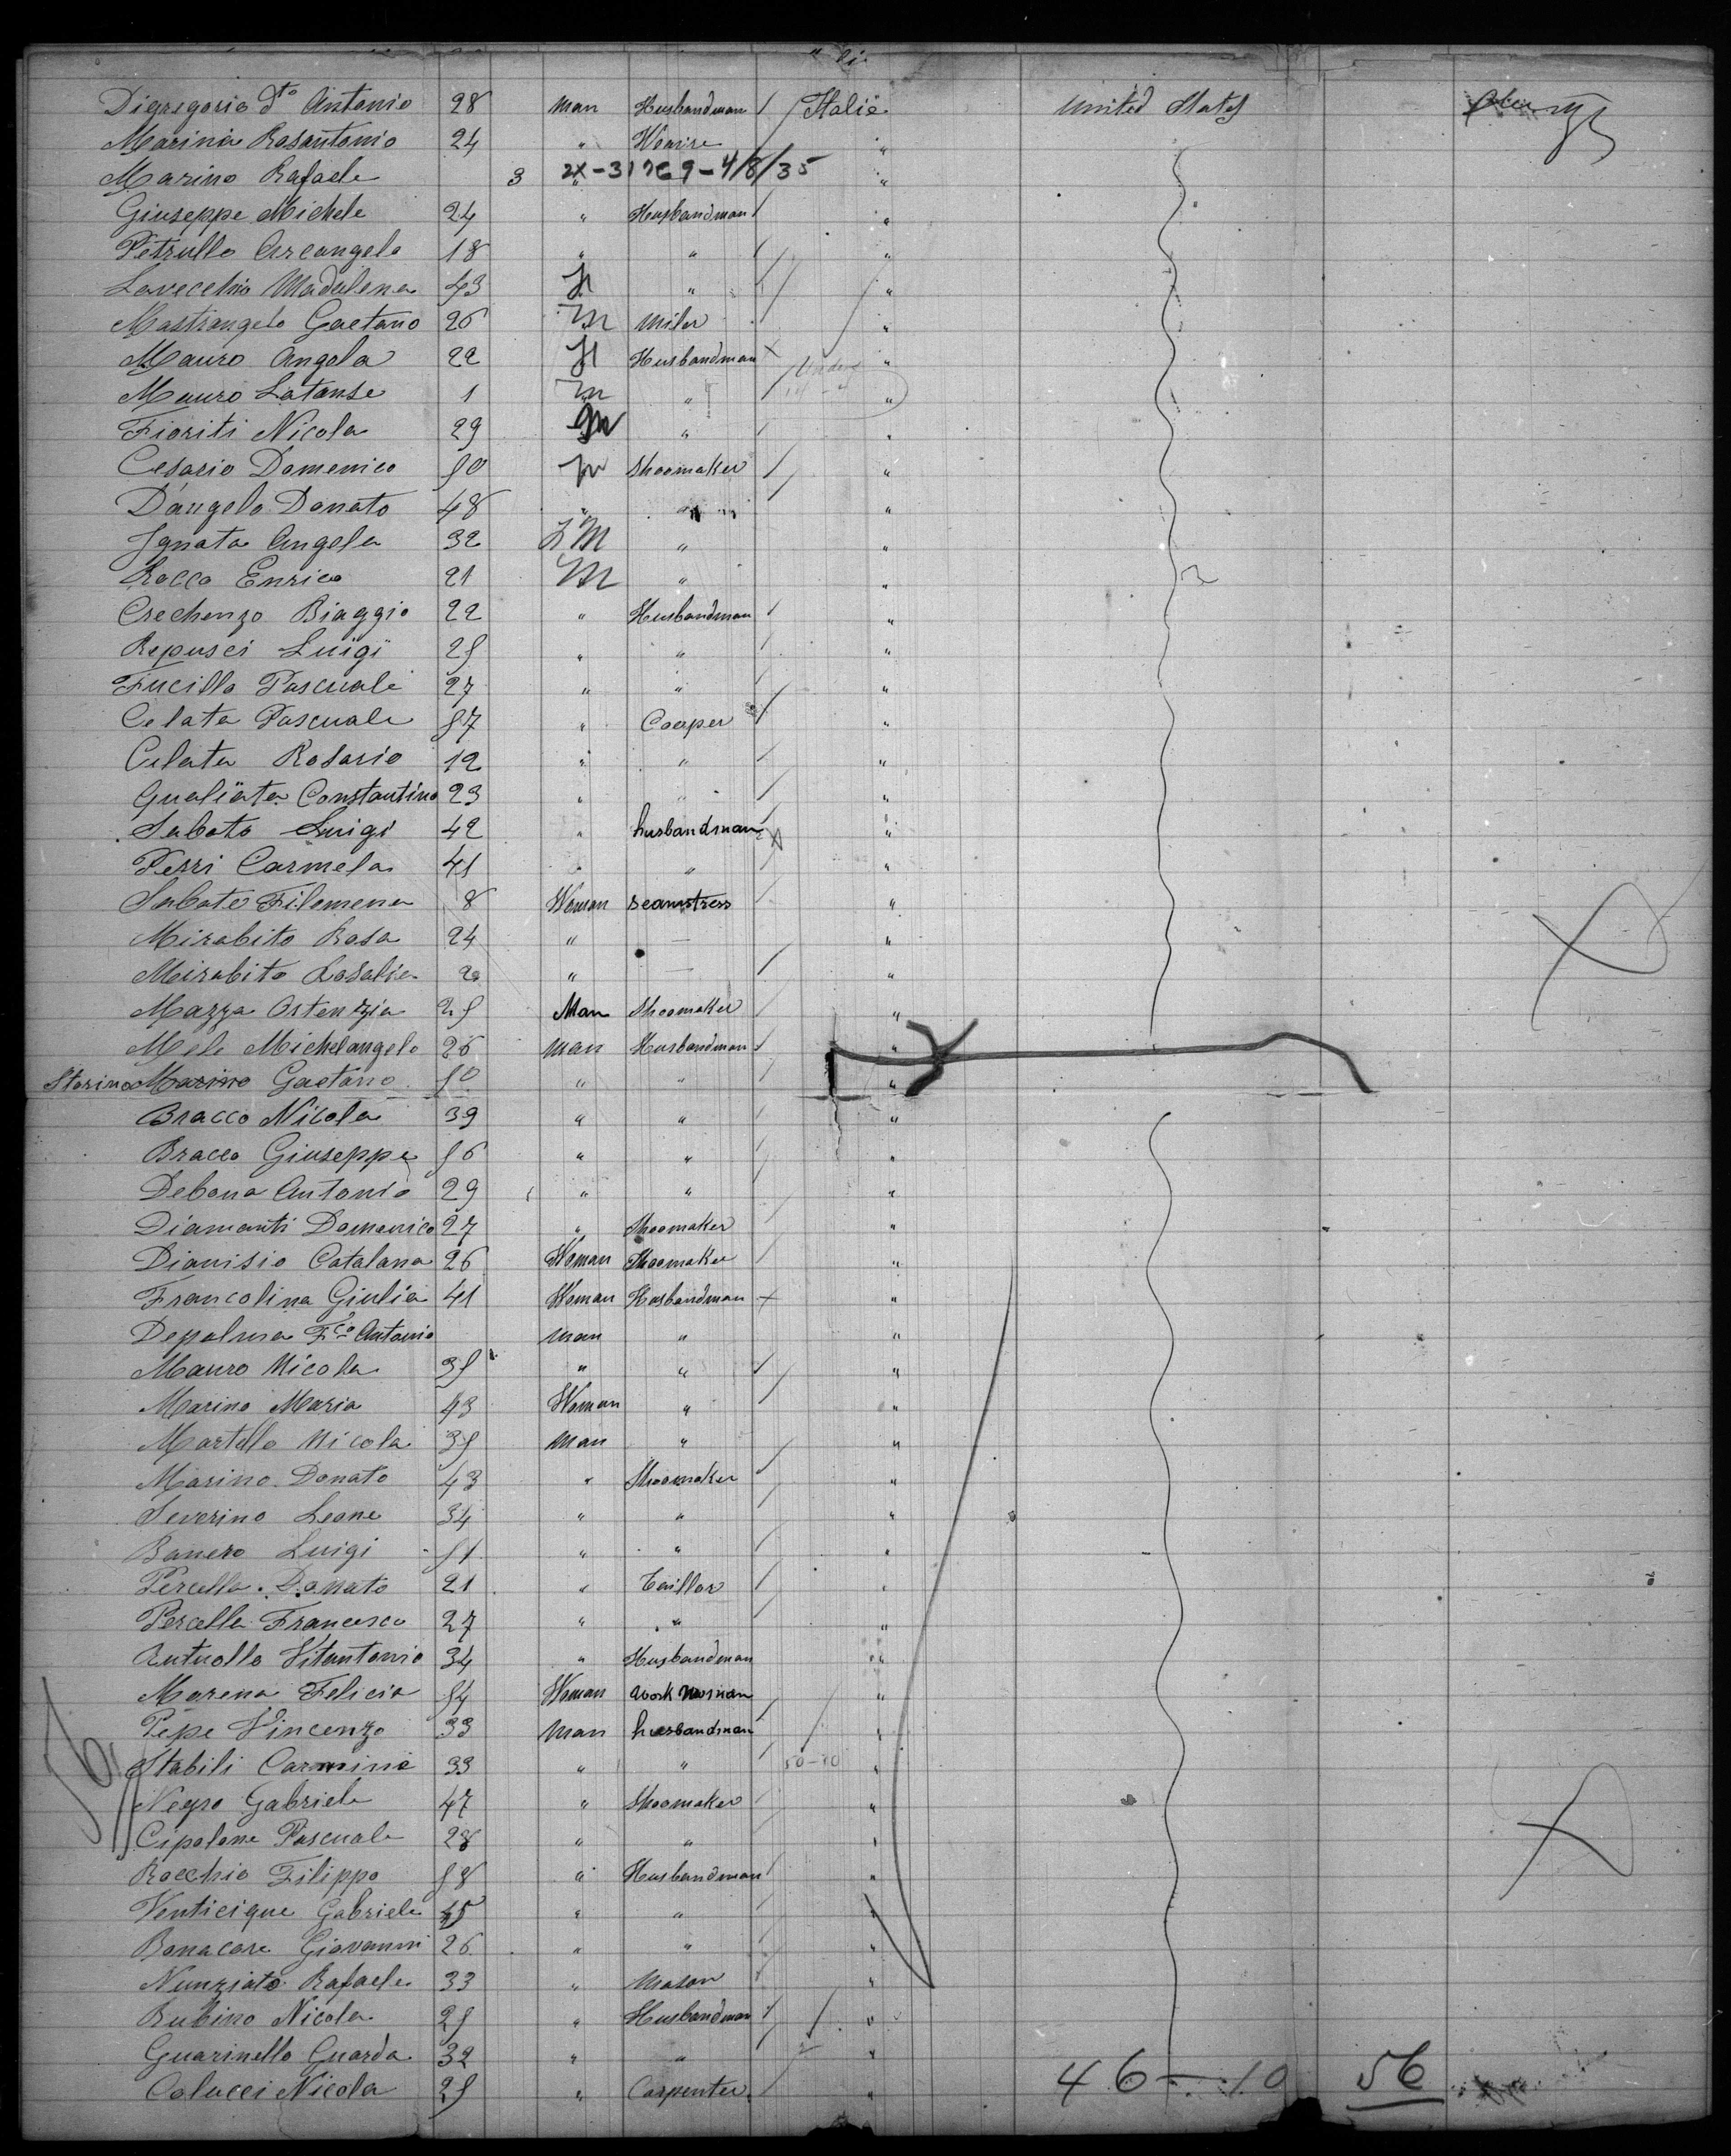 Digregorio dto Antonio 28 man Husbandman / Italie United States
Marinia Rosantonio 24 " "
Marino Rafaele 3 2X-31769-4/8/35 " "
Giuseppe Michele 24 " Husbandman / "
Petrullo Arcangelo 18 " " / "
Lavecchia Madalena 43 " "
Mastrangelo Gaetano 26 m Miler "
Mauro Angela 22 Husbandman X "
Mauro Latanse 1 m " / under 14 "
Fioriti Nicola 29 m " "
Cesario Domenico 50 m Shoomaker / "
D'angelo Donato 48 " " / "
Ignata Angela 32 M " "
Rocco Enrico 21 M " "
Crechenzo Biaggio 22 " Husbandman / "
Repusci Luigi 25 " " / "
Fucillo Pascuale 27 " " / "
Celata Pascuale 57 " Cooper / "
Celata Rosario 12 " " / "
Gualiata Constantino 23 " " / "
Sabato Luigi 42 " husbandman X "
Perri Carmela 41 " " / "
Sabato Filomena 8 Woman seamstress / "
Mirabito Rosa 24 " — "
Mirabito Rosalia " — / "
Mazza Ostenzia 25 Man Shoomaker / "
Mele Michelangelo 26 man Husbandman / "
Storino Marino Gaetano 50 " " / "
Bracco Nicola 39 " " / "
Bracco Giuseppe 56 " " / "
Debona Antonio 29 " " / "
Diamanti Domenico 27 " Shoomaker / "
Dianisio Catalana 26 Woman Shoomaker / "
Francolina Giulia 41 Woman Husbandman X "
Depalma Fco Antonio man " "
Mauro Nicola 35 " " / "
Marino Maria 43 Woman " / "
Martello Nicola 35 man " / "
Marino Donato 43 " Shoomaker / "
Severino Leone 34 " " / "
Banero Luigi 51 " " / "
Percella Donato 21 " Taillor / "
Percella Francesco 27 " " / "
Antuollo Vitantonio 34 " Husbandman "
Morena Felicia 54 Woman work woman / "
Pepe Vincenzo 33 man husbandman / "
Stabili Carminie 33 " " / 50-10 "
Negro Gabriele 47 " Shoomaker / "
Cipolone Pascuale 28 " " / "
Rocchio Filippo 58 " Husbandman / "
Venticique Gabriele 45 " " / "
Bonacore Giovanni 26 " " / "
Nunziato Rafaele 33 " Mason / "
Rubino Nicola 25 " Husbandman / "
Guarinello Guarda 32 " " / "
Colucci Nicola 25 " Carpenter / "
46-10 56